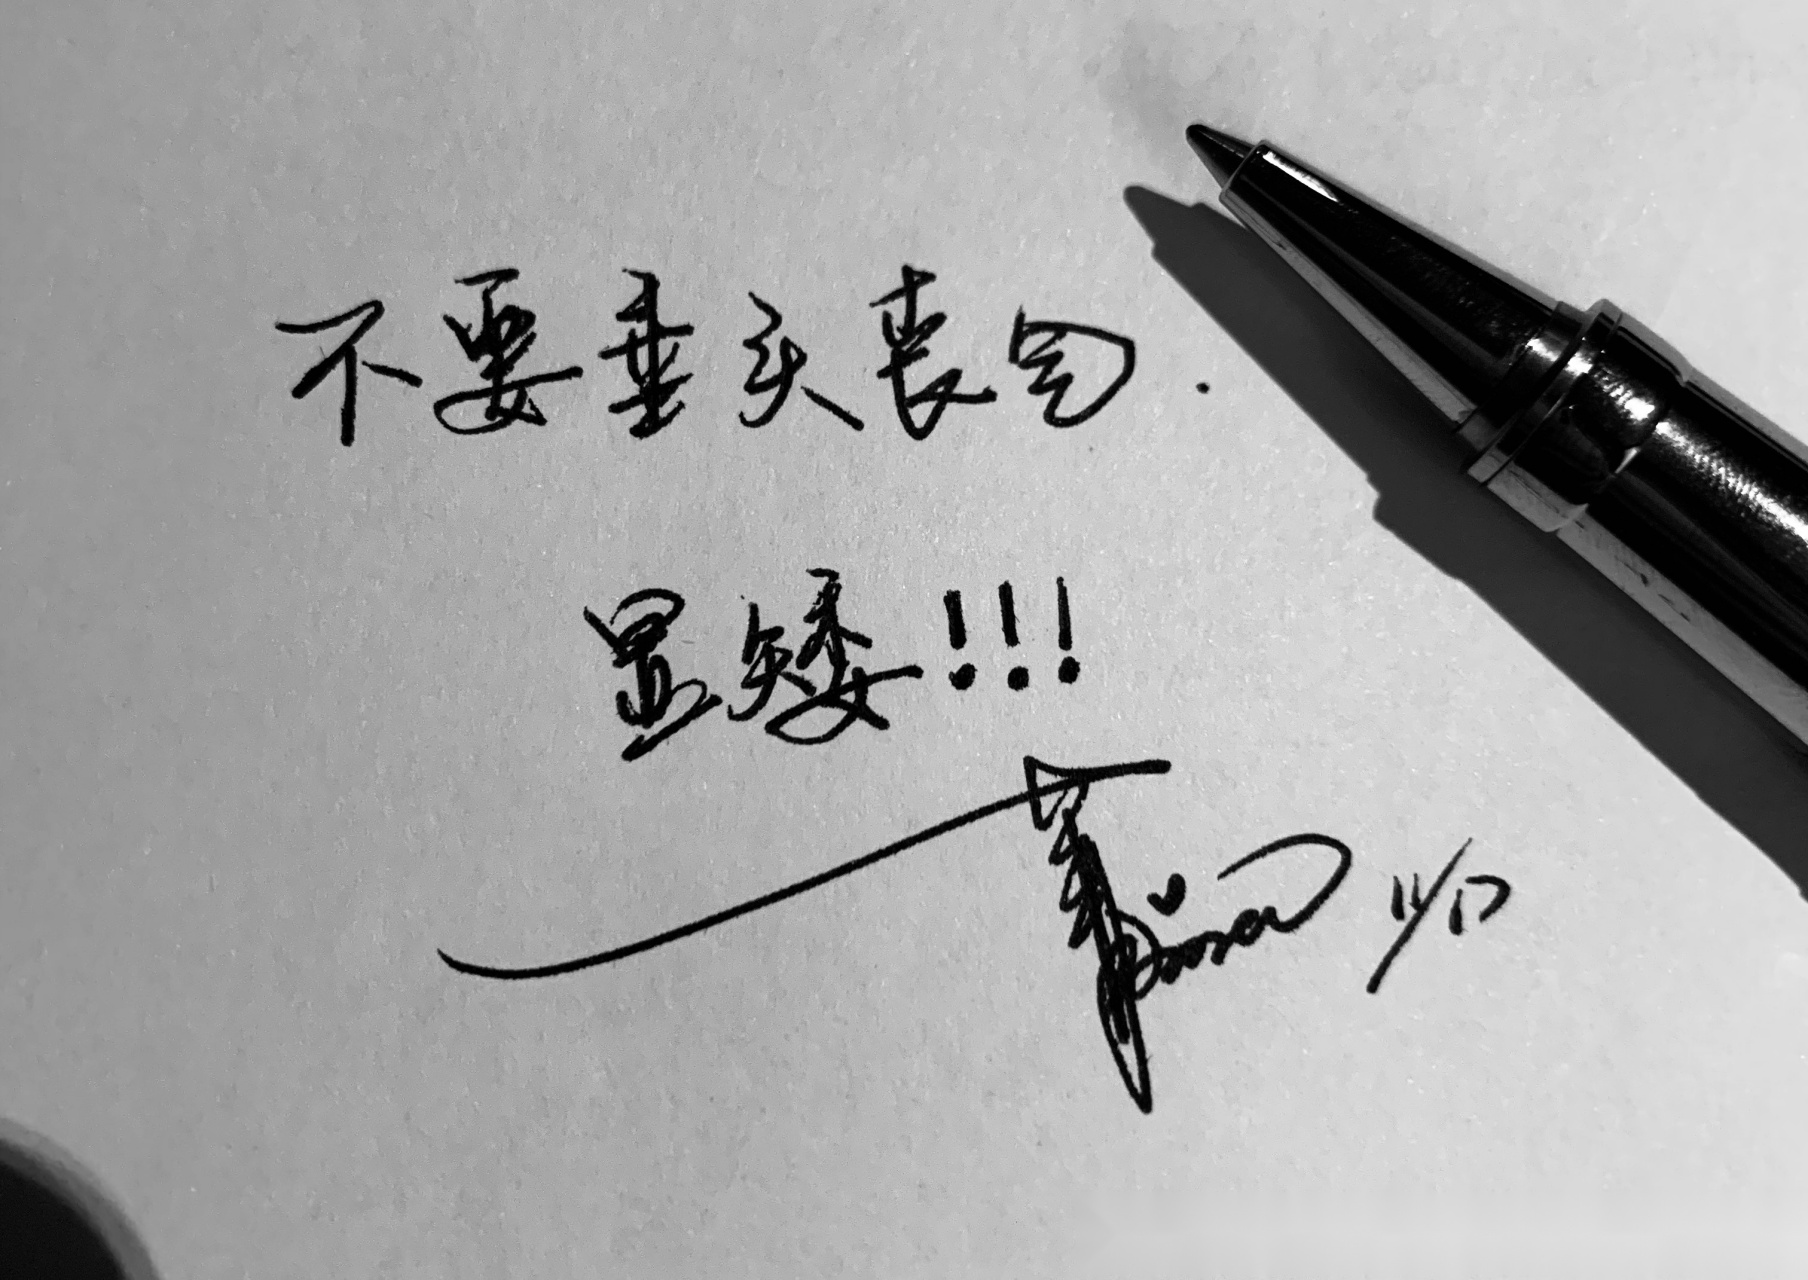 不要垂头丧气.
显矮!!!
11/17